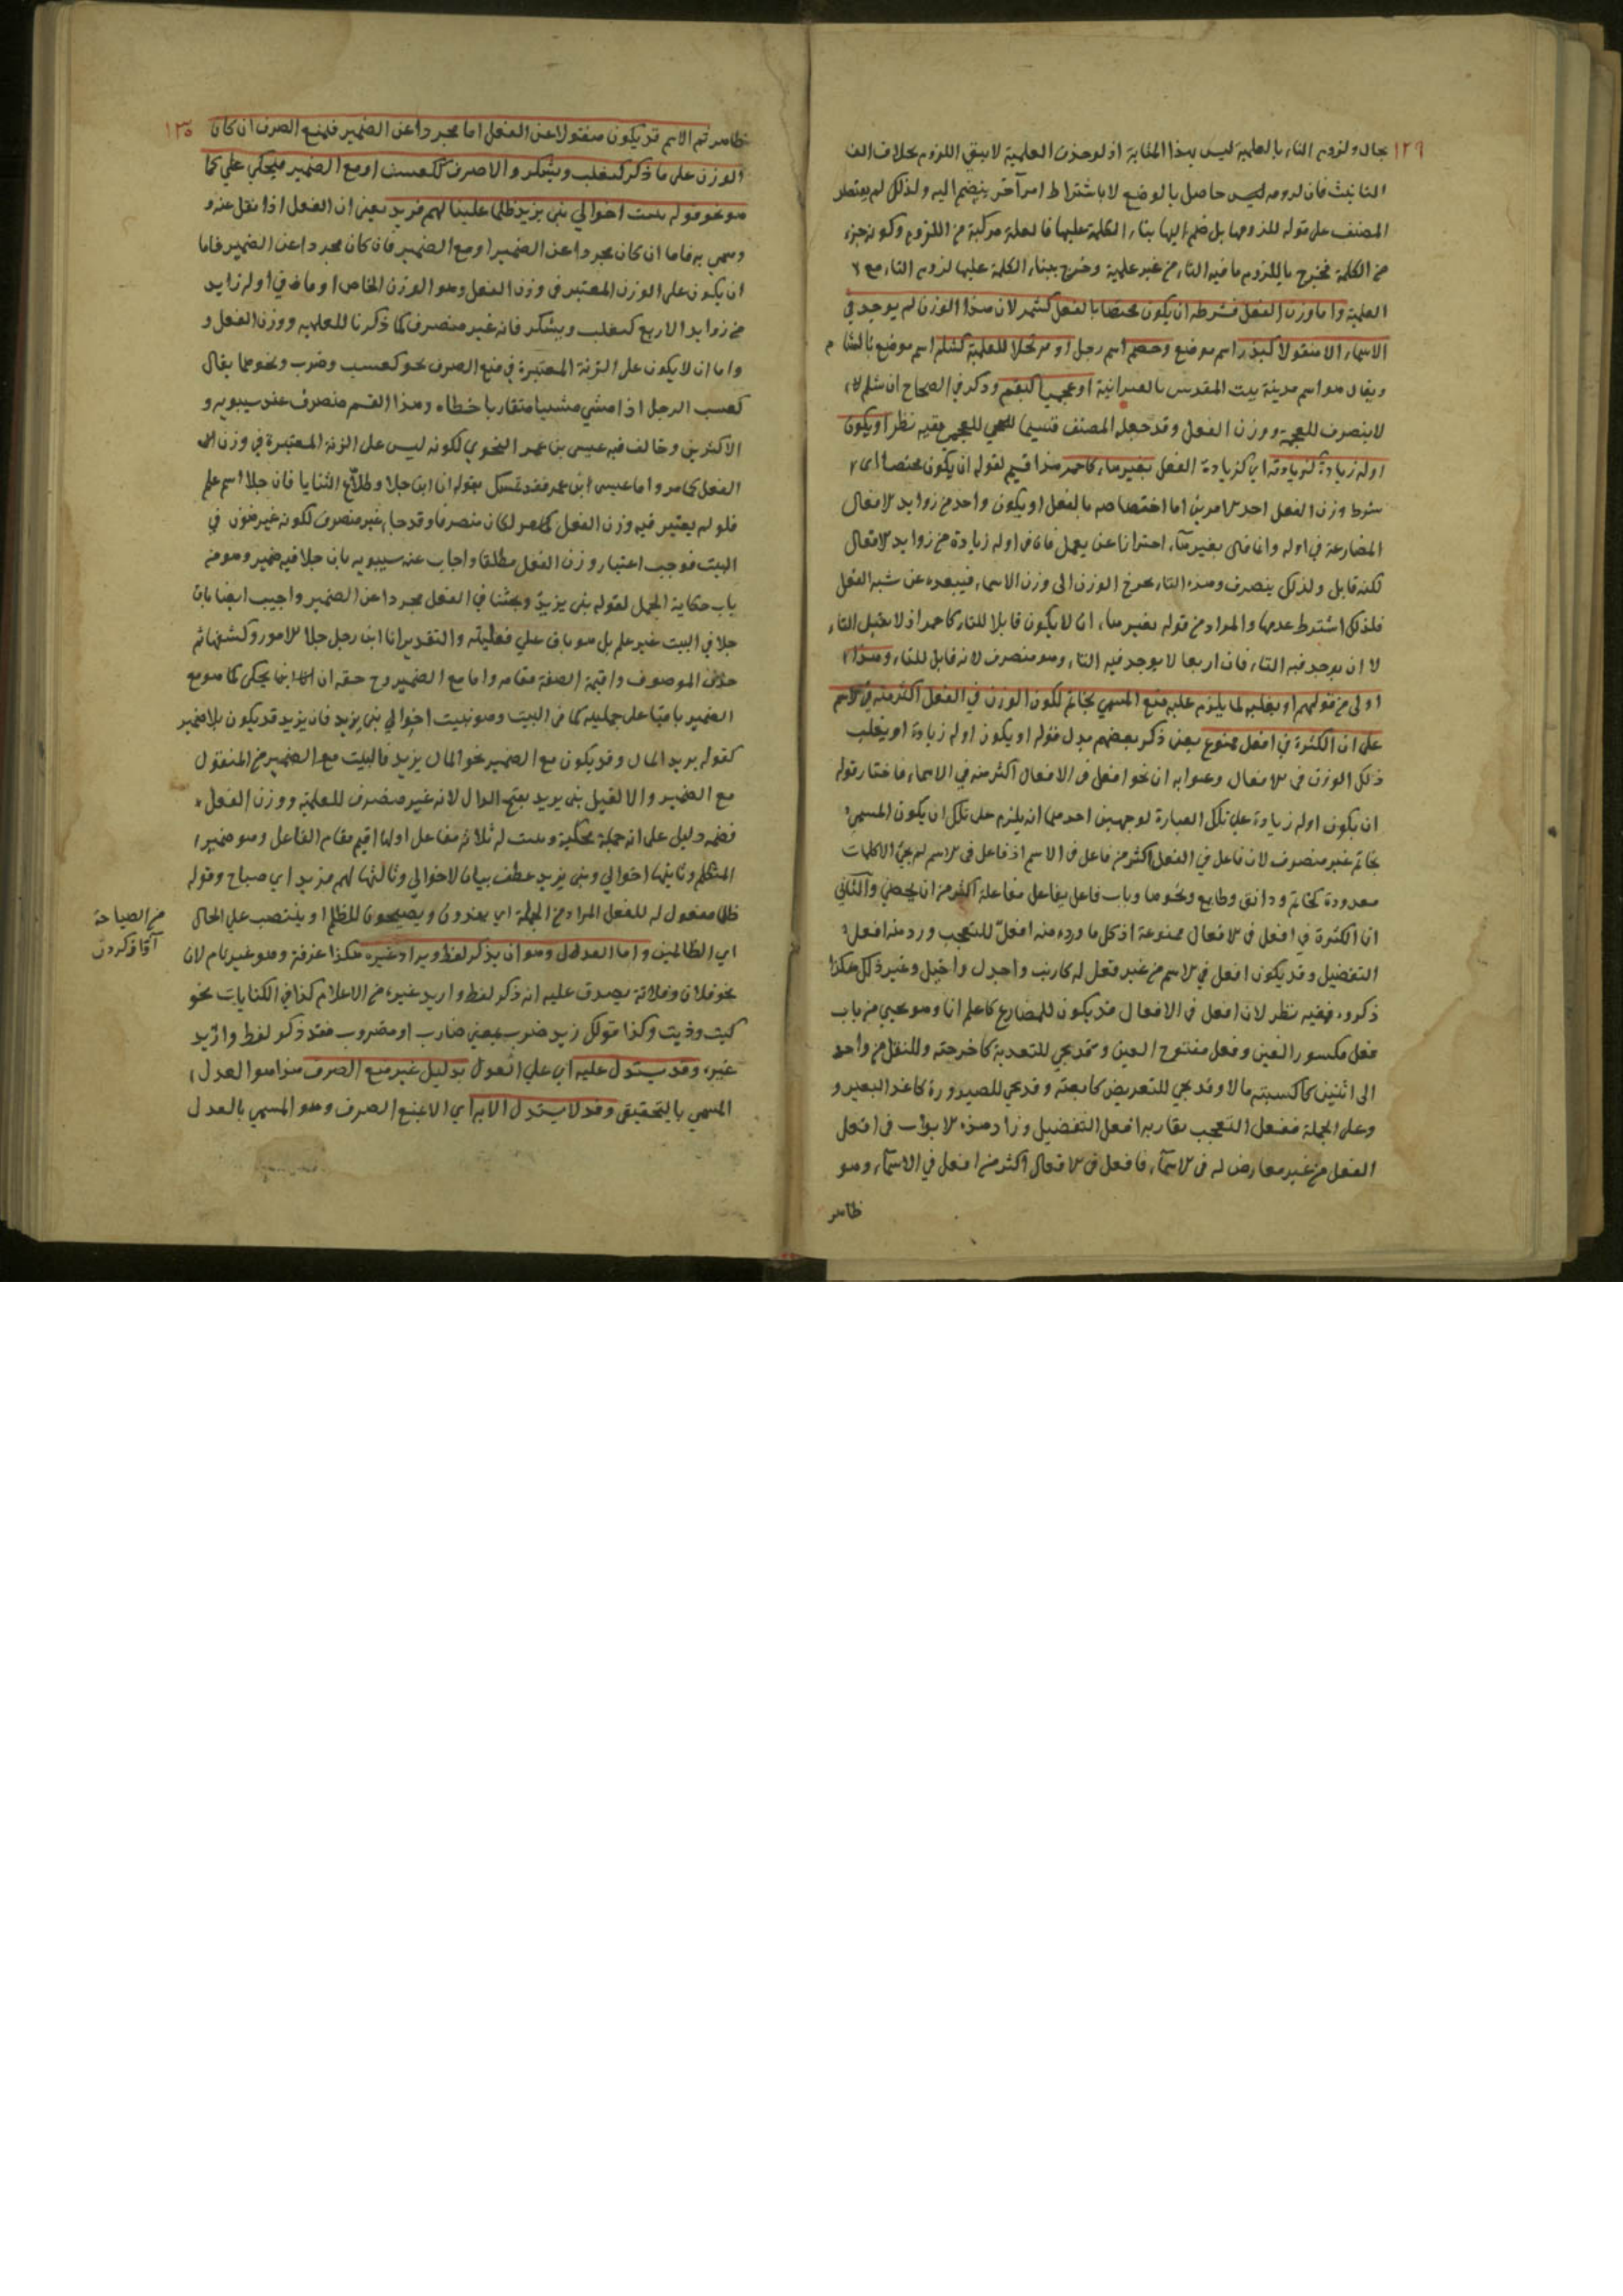 ١٢٩
بحال ولزوم التاء بالعلمية ليس بهذا المثابة اذ لو حذف العلمية لا يبقى اللزوم بخلاف الف
التانيث فان لزومه ليس حاصل بالوضع لا باشتراط امر آخر ينضم اليه ولذلك لم يقتصر
المصنف على قوله للزومها بل ضم اليها بناء الكلمة عليها فالعلة مركبة من اللزوم وكونه جزء
من الكلمة فخرج باللزوم ما فيه التاء من غير علمية وخرج ببناء الكلمة عليها لزوم التاء مع
العلمية واما وزن الفعل فشرطه ان يكون مختصا بالفعل كشمر لان هذا الوزن لم يوجد في
الاسماء الا منقولا كبذر اسم موضع وخضم اسم رجل او مرتجلا للعلمية كشلم اسم موضع بالشام
ويقال هو اسم مدينة بيت المقدس بالعبرانية او عجميا كبقم وذكر في الصحاح ان شلم
لا ينصرف للعجمة ووزن الفعل وقد جعله المصنف قسيما للعجمي ففيه نظر او يكون
اوله زيادة كزيادته اي كزيادة الفعل بغير هاء كاحمر هذا قسيم لقوله ان يكون مختصا اي
شرط وزن الفعل احد الامرين اما اختصاصه بالفعل او يكون واحد من زوايد الافعال
المضارعة في اوله وانما قال بغير هاء احترازا عن يعمل فان في اوله زيادة من زوايد الافعال
لكنه قابل ولذلك ينصرف وهذه التاء تخرج الوزن الى وزن الاسماء فيبعده عن شبه الفعل
فلذلك اشترط عدمها والمراد من قوله بغير هاء ان لا يكون قابلا للتاء كاحمر اذ لا يقبل التاء
لا ان يوجد فيه التاء فان اربعا لا يوجد فيه التاء وهو منصرف لانه قابل للتاء وهذا
اولى من قولهم او يغلبه لما يلزم عليه منع المسمى بخاتم لكون الوزن في الفعل اكثر منه في الاسم
على ان الكثرة في افعل ممنوع يعني ذكر بعضهم بدل قوله او يكون اوله زيادة او يغلب
ذلك الوزن في الافعال وعنوا به ان نحو افعل في الافعال اكثر منه في الاسماء فاختار قوله
ان يكون اوله زيادة على تلك العبارة لوجهين احدهما انه يلزم على تلك ان يكون المسمى
بخاتم غير منصرف لان فاعل في الفعل اكثر من فاعل في الاسم اذ فاعل في الاسم لم يجئ الا كلمات
معدودة كخاتم ودانق وطابع ونحوها وباب فاعل يفاعل مفاعلة اكثر من ان يحصى والثاني
ان الكثرة في افعل في الافعال ممنوعة اذ كل ما ورد منه افعل للتعجب ورد منه افعل
التفضيل وقد يكون افعل في الاسم من غير فعل له كارنب واجدل واخيل وغير ذلك هكذا
ذكروه ففيه نظر لان افعل في الافعال قد يكون للمضارع كاعلم انا وهو يجيئ من باب
فعل مكسور العين وفعل مفتوح العين وقد يجي للتعدية كاخرجته وللنقل من واحد
الى اثنين كاكسبته مالا وقد يجي للتعريض كابعته وقد يجي للصيرورة كاغد البعير و
وعلى الجملة ففعل التعجب يقاربه افعل التفضيل وزاد هذه الابواب في افعل
الفعل من غير معارض له في الاسماء فافعل في الافعال اكثر من افعل في الاسماء وهو
ظاهر
١٣٠
ظاهر ثم الاسم قد يكون منقولا عن الفعل اما مجردا عن الضمير فيمنع الصرف ان كان
الوزن على ما ذكر كتغلب ويشكر والا صرف ككعسب او مع الضمير فيحكي على كما
هو نحو قوله نبئت اخوالي بني يزيد ظلما علينا لهم فديد يعني ان الفعل اذا نقل عنه و
وسمي به فاما ان كان مجردا عن الضمير او مع الضمير فان كان مجردا عن الضمير فاما
ان يكون على الوزن المعتبر في وزن الفعل وهو الوزن الخاص او ما في اوله زايد
من زوايد الاربع كتغلب ويشكر فانه غير منصرف كما ذكرنا للعلمية ووزن الفعل و
واما ان لا يكون على الزنة المعتبرة في منع الصرف نحو كعسب وضرب ونحوهما يقال
كعسب الرجل اذا مشي مشيا متقاربا خطاه وهذا القسم منصرف عند سيبويه و
الاكثرين وخالف فيه عيسى بن عمر النحوي لكونه ليس على الزنة المعتبرة في وزن
الفعل كما مر واما عيسى ابن عمر فقد تمسك بقوله انا ابن جلا وطلاع الثنايا فان جلا اسم علم
فلو لم يعتبر فيه وزن الفعل لكان منصرفا وقد جاء غير منصرف لكونه غير منون في
البيت فوجب اعتبار وزن الفعل مطلقا واجاب عنه سيبويه بان جلا فيه ضمير وهو من
باب حكاية الجمل لقوله بني يزيد وبحثنا في الفعل مجردا عن الضمير واجيب ايضا بان
جلا في البيت غير علم بل هو باق على فعليته والتقدير انا ابن رجل جلا الامور وكشفها ثم
حذف الموصوف واقيمت الصفة مقامه واما مع الضمير وح حقه ان يحكي كما هو مع
الضمير باقيا على جمليته كما في البيت وهو نبئت اخوالي بني يزيد فان يزيد قد يكون بلا ضمير
كقوله يزيد المال وقد يكون مع الضمير نحو المال يزيد فالبيت مع الضمير من المنقول
مع الضمير والا لقيل بني يزيد بفتح الدال لانه غير منصرف للعلمية ووزن الفعل
فضمه دليل على انه جملة محكية ونبئت له ثلاثة مفاعل اولها اقيم مقام الفاعل وهو ضمير
المتكلم وثانيها اخوالي وبني يزيد عطف بيان لاخوالي وثالثها لهم فديد اي صياح وقوله
ظلما مفعول له للفعل المراد من الجملة اي يفدون ويصيحون للظلم او ينتصب على الحال
من الصياحة
اي الظالمين واما العدل وهو ان يذكر لفظ ويراد غيره هكذا عرفه وهو غير تام لان
نحو فلان وفلانة يصدق عليه انه ذكر لفظ واريد غيره من الاعلام كذا في الكنايات نحو
كيت وذيت وكذا قولك زيد ضرب بمعنى ضارب او مضروب فقد ذكر لفظ واريد
غيره وقد يستدل عليه اي على العدول بدليل غير منع الصرف هذا هو العدل
المسمى بالتحقيقي وقد لا يستدل الا به اي الا بمنع الصرف وهو المسمى بالعدل